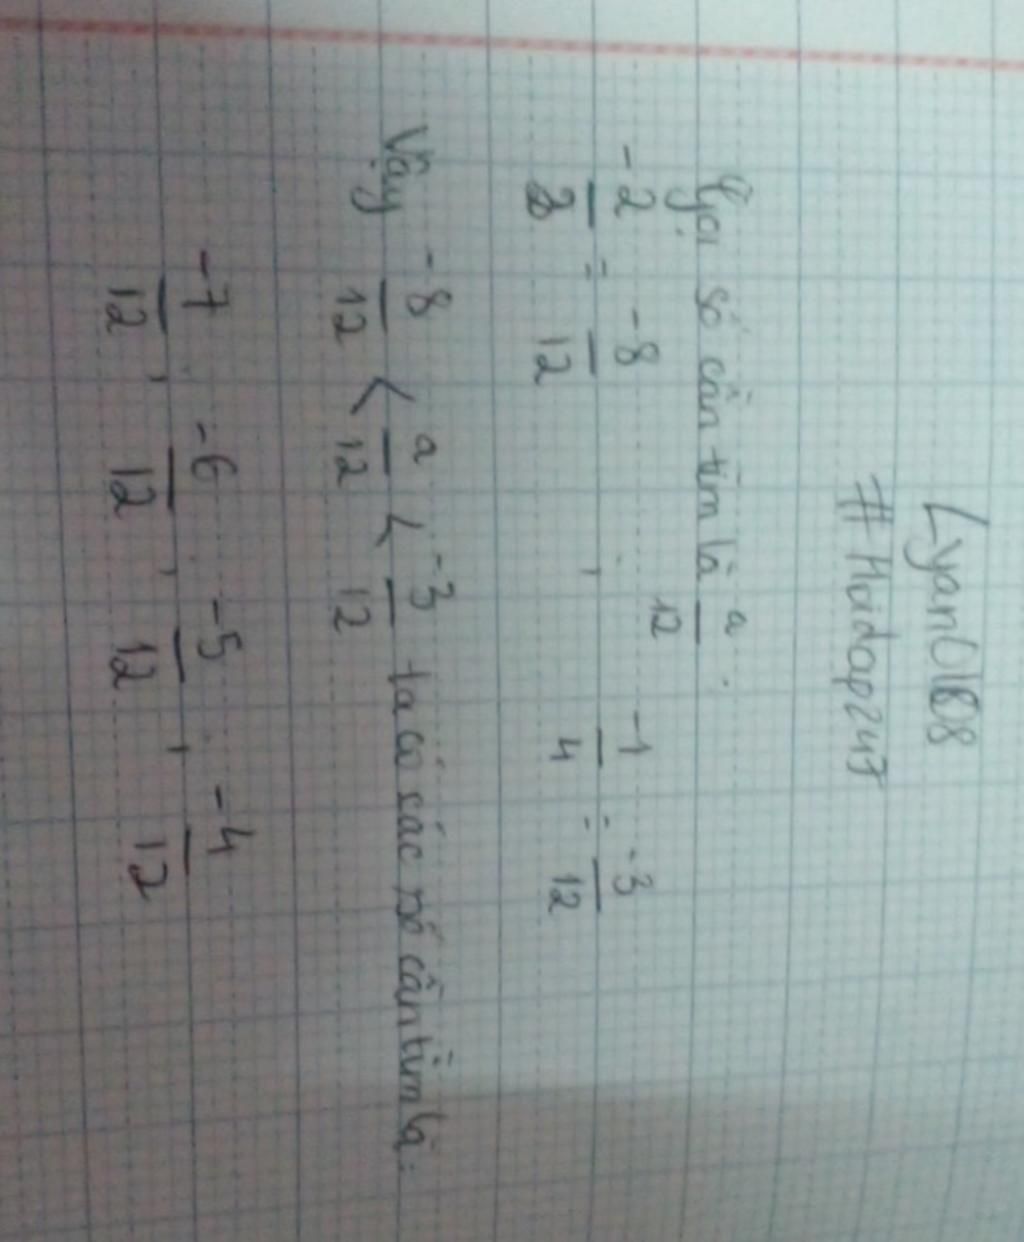 Lyan0188
#Hoidap247
Gọi số cần tìm là a/12.
-2/3 = -8/12 , -1/4 = -3/12
Vậy -8/12 < a/12 < -3/12 ta có các số cần tìm là:
-7/12, -6/12, -5/12, -4/12